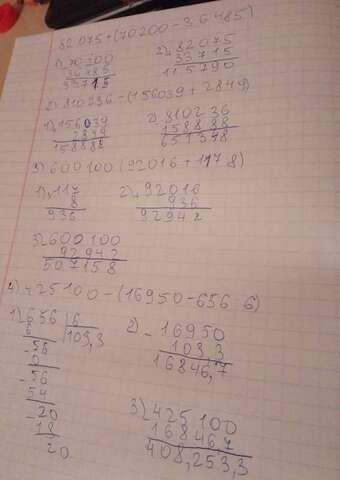 82 075+(70200-36485)
1) 70200
36485
33715
2) 82075
33715
115790
2) 810236-(156039+2849)
1) 156039
2849
158888
2) 810236
158888
651348
3) 600100(92016+117 8)
1) 117
8
936
2) 92016
936
92942
3) 600100
92942
507158
4) 425100-(16950-656 6)
1) 656 6
6 109,3
56
0
56
54
20
18
20
2) -16950
103 3
16846,7
3) 425100
168467
408,253,3